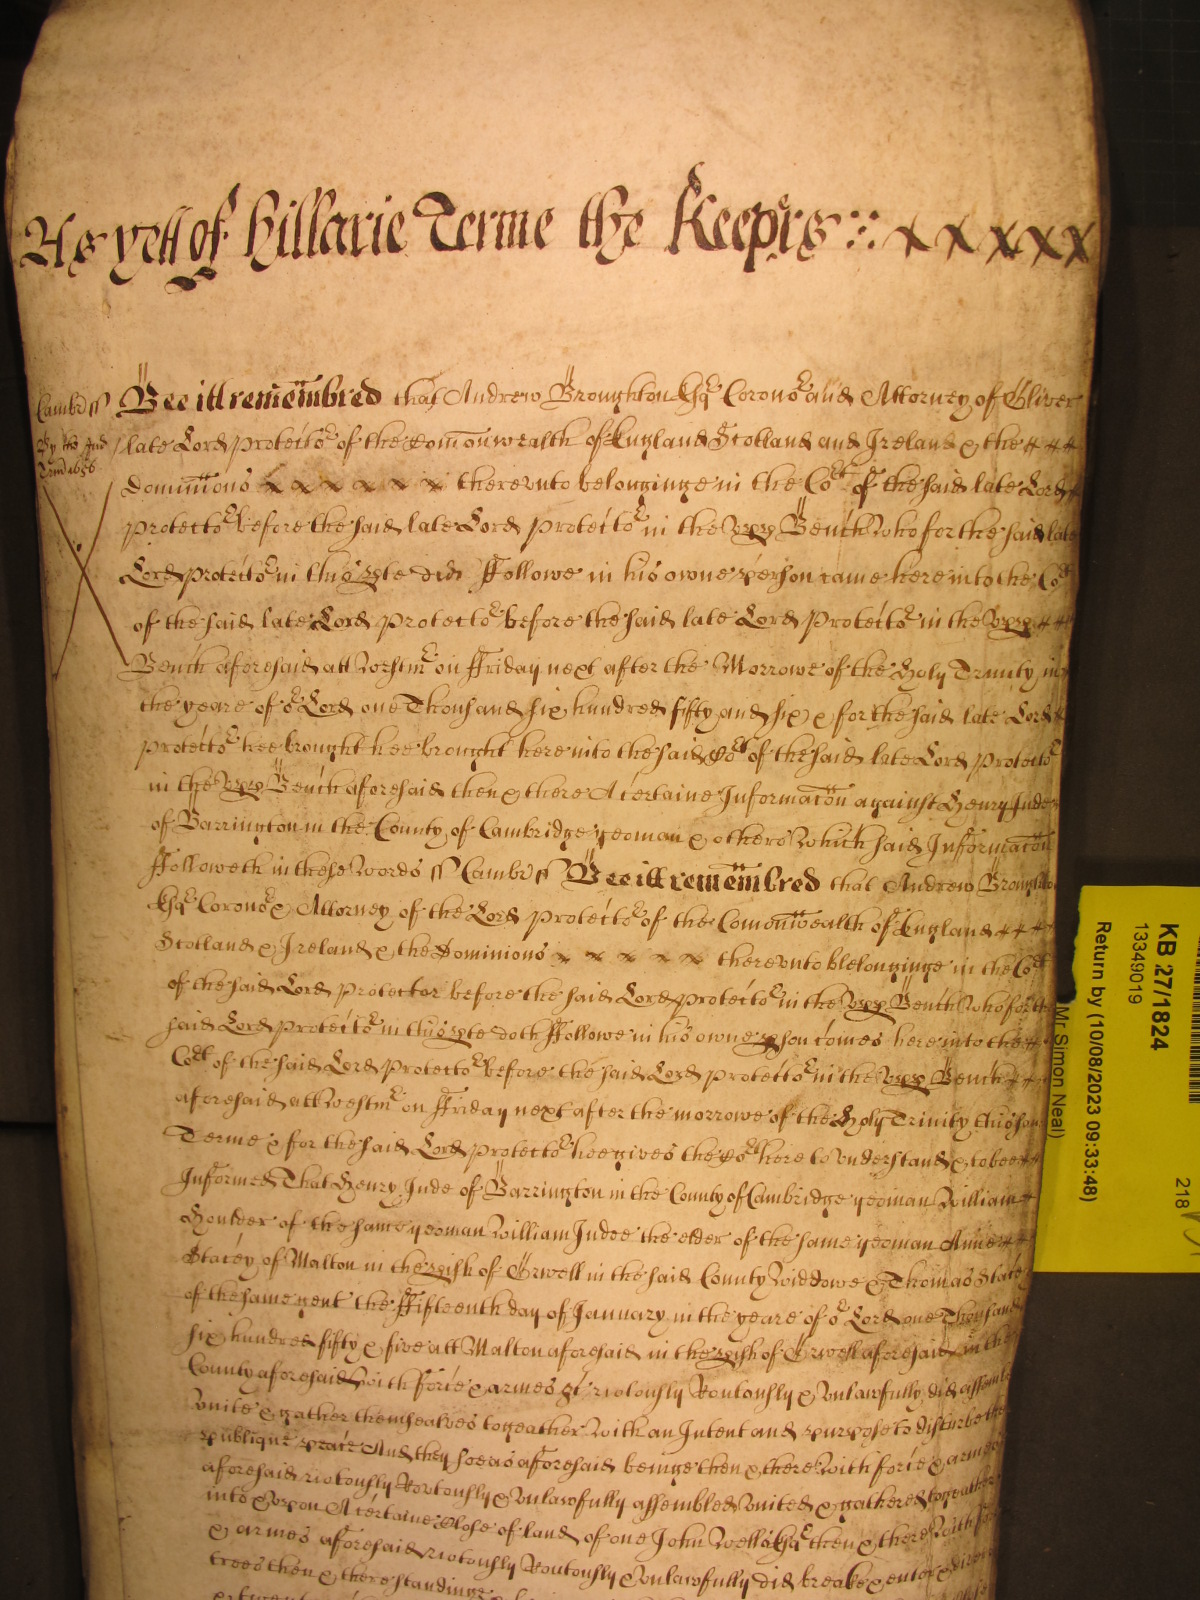 As yett of Hillarie Terme the Keeprs
Cambr ss
By the Ind
Trin 1656
Bee itt remembred that Andrew Broughton Esqr Coronor and Attorney of Oliver
late Lord protector of the Comonwealth of England Scotland and Ireland & the
Dominions x x x x x x therevnto belonginge in the Cort of the said late Lord
protector before the said late Lord protector in the vpp Bench Who for the said late
Lord protector in this pte did Followe in his owne person came here into the Cort
of the said late Lord protector before the said late Lord protector in the vpp
Bench aforesaid att Westmr on Friday next after the Morrowe of the Holy Trinity in
the yeare of or Lord one Thousand six hundred fifty and six & for the said late Lord
protector hee brought hee brought here into the said Cort of the said late Lord protector
in the vpp Bench aforesaid then & there A certaine Informacon against Henry Jude
of Barrington in the County of Cambridge yeoman & others Which said Informacon
Followeth in these Words ss Cambr ss Bee itt remembred that Andrew Broughton
Esqr Coronor & Attorney of the Lord protector of the Comonwealth of England
Scotland & Ireland & the Dominions x x x x x therevnto blelonginge in the Cort
of the said Lord protector before the said Lord protector in the vpp Bench Who for the
said Lord protector in this pte doth Followe in his owne pson comes here into the
Cort of the said Lord protector before the said Lord protector in the vpp Bench
aforesaid att Westmr on Friday next after the morrowe of the Holy Trinity this same
Terme & for the said Lord protector hee gives the Cort here to vnderstand & to bee
Informed That Henry Jude of Barrington in the County of Cambridge yeoman William
of the same yeoman William Judee the elder of the same yeoman Anne
Stacey of Malton in the pish of Orwell in the said County Widdowe & Thomas Stacey
of the same gent the Fifteenth day of January in the yeare of or Lord one Thousand
six hundred fifty & five att Malton aforesaid in the pish of Orwell aforesaid in the
County aforesaid with force & armes &c riotously Routously & vnlawfully did assemble
vnite & gather themsealves togeather With an Intent and purpose to disturbe the
publique peace And they soe as aforesaid beinge then & there With force & armes
aforesaid riotously Routously & vnlawfully assembled vnited & gathered togeather
into & vpon A certaine Close of land of one John Wells Esqr then & there With force
& armes aforesaid riotously Routously & vnlawfully did breake & enter &
trees then & there standinge
KB 27/1824
13349019
Return by (10/08/2023 09:33:48)
Mr Simon Neal)
218